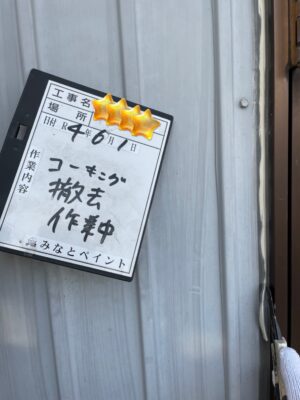 工事名
場所
日付 R4年6月1
作業内容
コーキング
撤去
作業中
みなとペイント